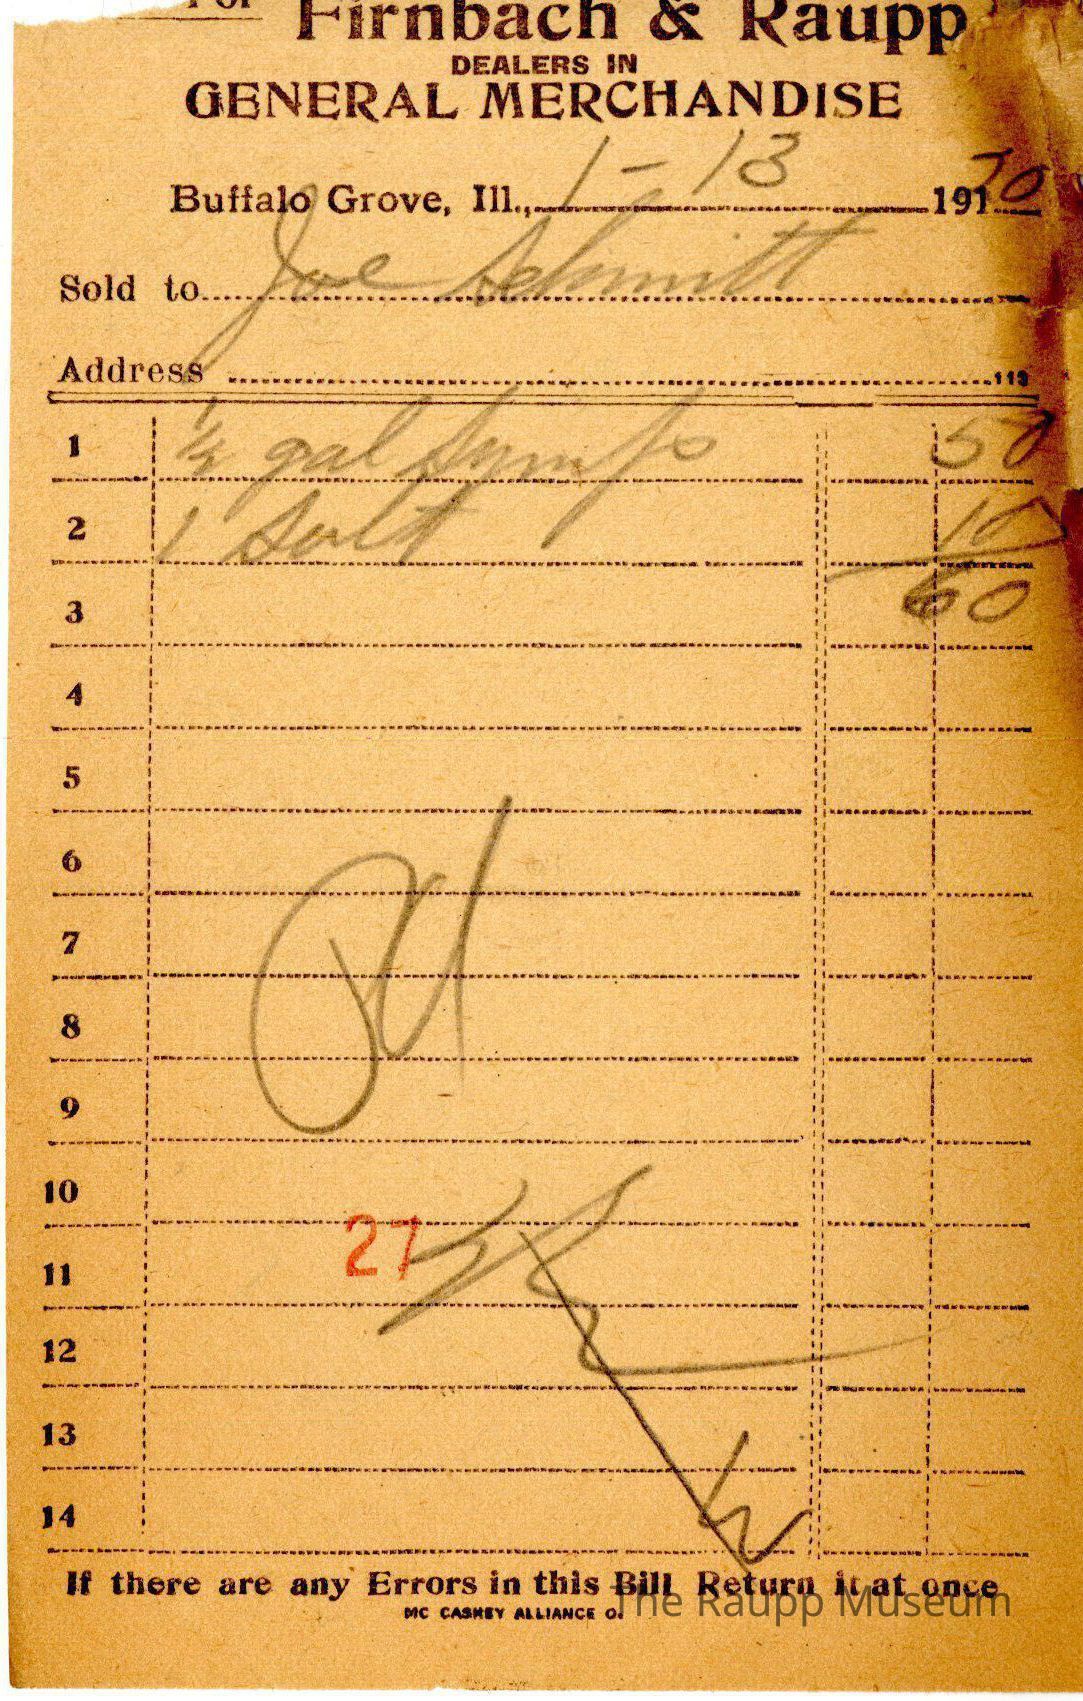 Firnbach & Raupp
DEALERS IN
GENERAL MERCHANDISE
Buffalo Grove, Ill., 1-13 191
Sold to Joe Schmitt
Address
113
1 ½ gal Syrup 50
2 1 Salt 10
3 60
4
5
6
7
8
9
10
27
11
12
13
14
If there are any Errors in this Bill Return it at once
MC CASKEY ALLIANCE O.
The Raupp Museum